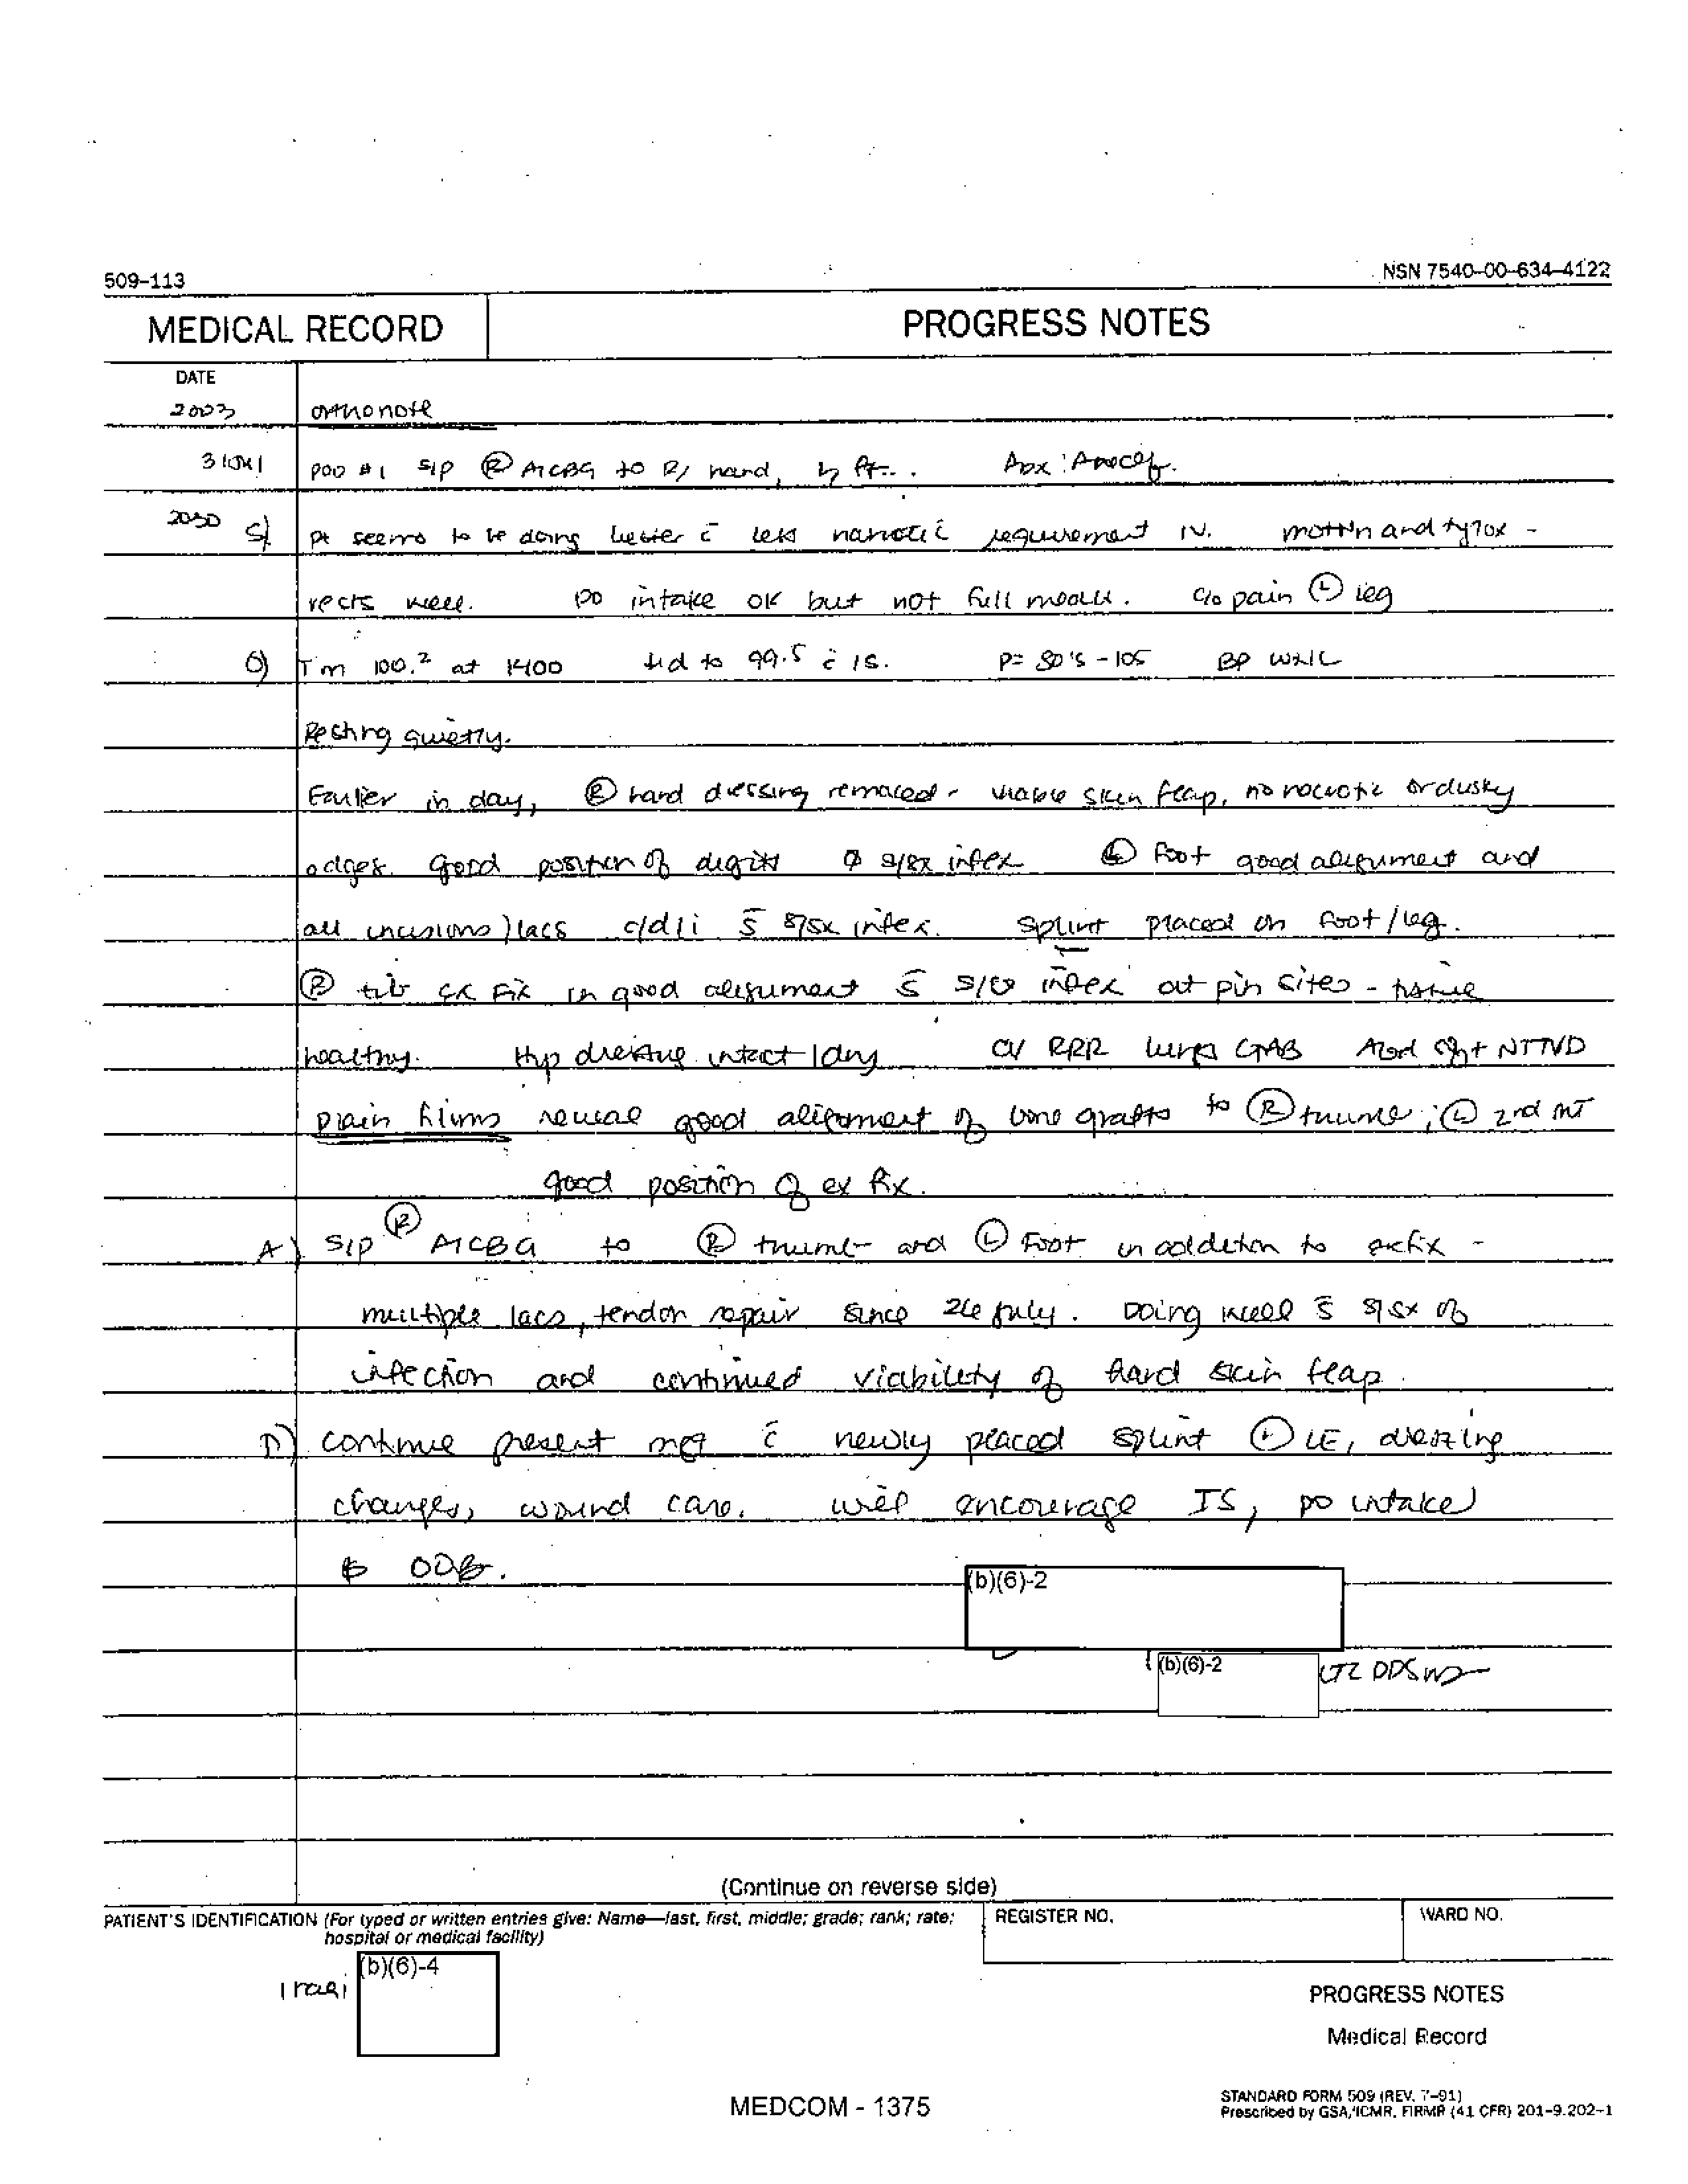 509-113
NSN 7540-00-634-4122
MEDICAL RECORD
PROGRESS NOTES
DATE
2003 ortho note
31 Jul POD #1 S/P Ⓡ AICBG to R/ hand, Abx: Ancef.
2030 S) pt seems to be doing better c̄ less narcotic requirement IV. motrin and tylox -
rests well. PO intake OK but not full meals. c/o pain Ⓛ leg
O) Tm 100.² at 1400 to 99.5 c̄ IS. P= 80's - 105 BP WNL
Resting quietly.
Earlier in day, Ⓡ hand dressing removed - viable skin flap, no necrotic or dusky
edges. good position of digits ∅ s/sx infex Ⓛ Foot good alignment and
all incisions/lacs c/d/i s̄ s/sx infex. splint placed on foot/leg.
Ⓡ tib ex fix in good alignment s̄ infex at pin sites - tissue
healthy. Hip dressing intact/dry CV RRR lungs CTAB Abd soft NTTVD
plain films reveal good alignment of bone grafts to Ⓡ thumb; Ⓛ 2nd MT
good position of ex fix.
A) S/P Ⓡ AICBG to Ⓡ thumb and Ⓛ Foot in addition to exfix -
multiple lacs, tendon repair since 26 July. Doing well s̄ s/sx of
infection and continued viability of hand skin flap.
P) continue present mgt c̄ newly placed splint Ⓛ LE, dressing
changes, wound care. will encourage IS, po intake
& OOB.
(b)(6)-2
(b)(6)-2
(Continue on reverse side)
PATIENT'S IDENTIFICATION (For typed or written entries give: Name—last, first, middle; grade; rank; rate;
hospital or medical facility)
REGISTER NO.
WARD NO.
Iraqi (b)(6)-4
PROGRESS NOTES
Medical Record
MEDCOM - 1375
STANDARD FORM 509 (REV. 7-91)
Prescribed by GSA/ICMR, FIRMR (41 CFR) 201-9.202-1